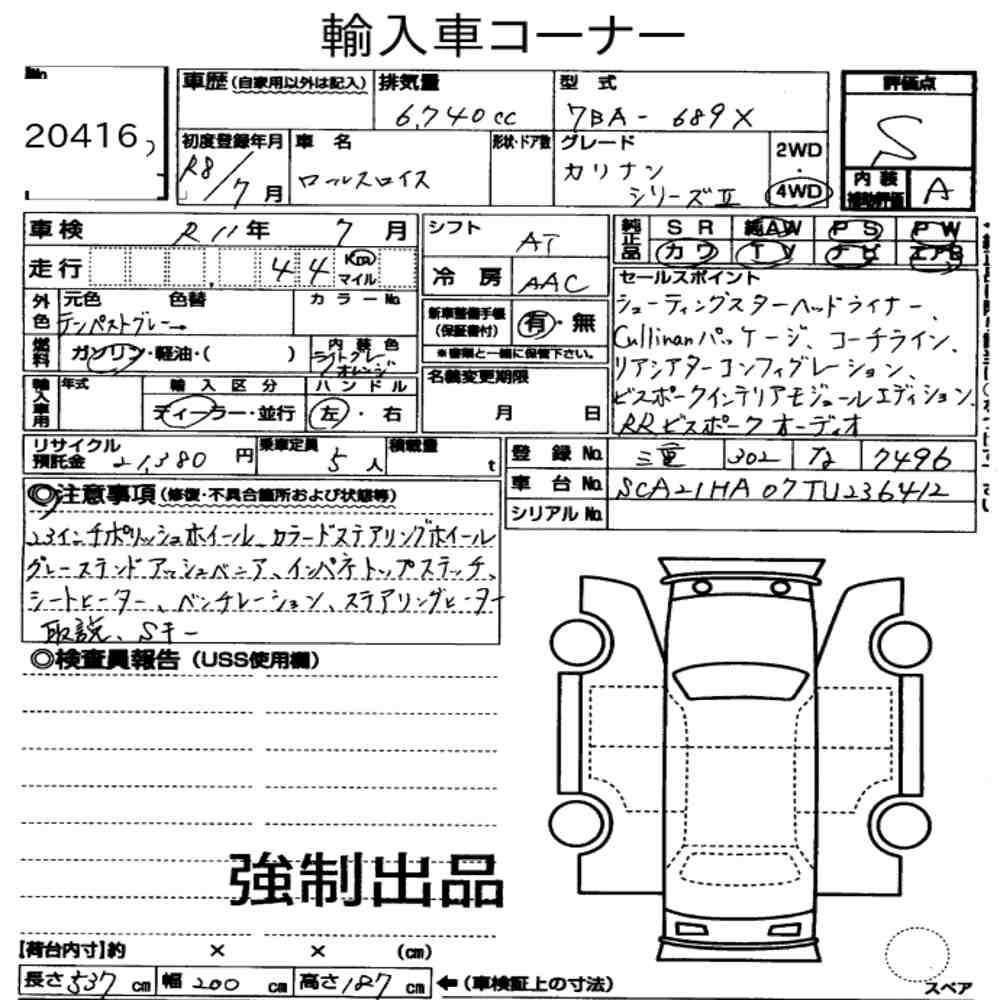 輸入車コーナー
No
20416
車歴 (自家用以外は記入) 排気量 型式
6,740cc 7BA- 689X
評価点
S
初度登録年月 車名 形状・ドア数 グレード
R8/7月 ロールスロイス カリナン シリーズⅡ
2WD
・
4WD
内装補助評価 A
車検 R11年 7月
走行 44 Km マイル
シフト AT
冷房 AAC
純正品 SR 純AW PS PW
カワ TV ナビ エアB
外色 元色 色替 カラーNo
テンペストグレー
燃料 ガソリン・軽油・( )
内装色 ライトグレー オレンジ
新車整備手帳 (保証書付) 有・無
※書類と一緒に保管下さい。
セールスポイント
シューティングスターヘッドライナー、
Cullinanパッケージ、コーチライン、
リアシアターコンフィグレーション、
ビスポークインテリアモジュールエディション、
RRビスポークオーディオ
輸入車用 年式 輸入区分 ハンドル
ディーラー・並行 左・右
名義変更期限
月 日
リサイクル預託金 21,380円 乗車定員 5人 積載量 t
登録No. 三重 302 7496
車台No. SCA21HA07TU236412
シリアルNo.
◎注意事項 (修復・不具合箇所および状態等)
23インチポリッシュホイール、カラードステアリングホイール
グレーステンドアッシュベニア、インペネトップステッチ、
シートヒーター、ベンチレーション、ステアリングヒーター
取説、Sキー
◎検査員報告 (USS使用欄)
強制出品
【荷台内寸】約 × × (cm)
長さ537cm 幅200cm 高さ187cm ←(車検証上の寸法)
スペア